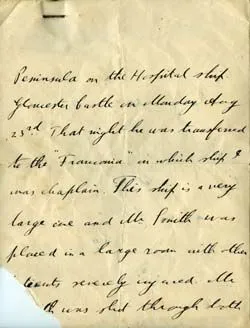 Peninsula on the Hospital ship
Gloucester Castle on Monday Aug
23rd That night he was transferred
to the "Franconia" in which ship I
was chaplain. This ship is a very
large one and Mr Smith was
placed in a large room with other
severely injured. Mr
was shot through both